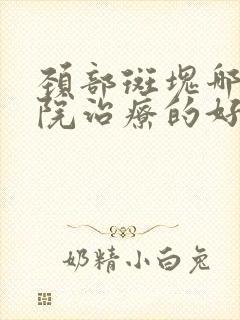 颈部斑块哪
院治疗的好
奶精小白兔